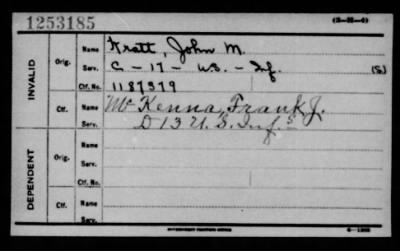 1253185 (3-22-6)
INVALID
Orig.
Name Kratt, John M.
Serv. C - 17 - U.S. - Inf. (S)
Ctf. No. 1187379
Ctf.
Name McKenna, Frank J.
Serv. D 13 U.S. Inf.
DEPENDENT
Orig.
Name
Serv.
Ctf. No.
Ctf.
Name
Serv.
GOVERNMENT PRINTING OFFICE